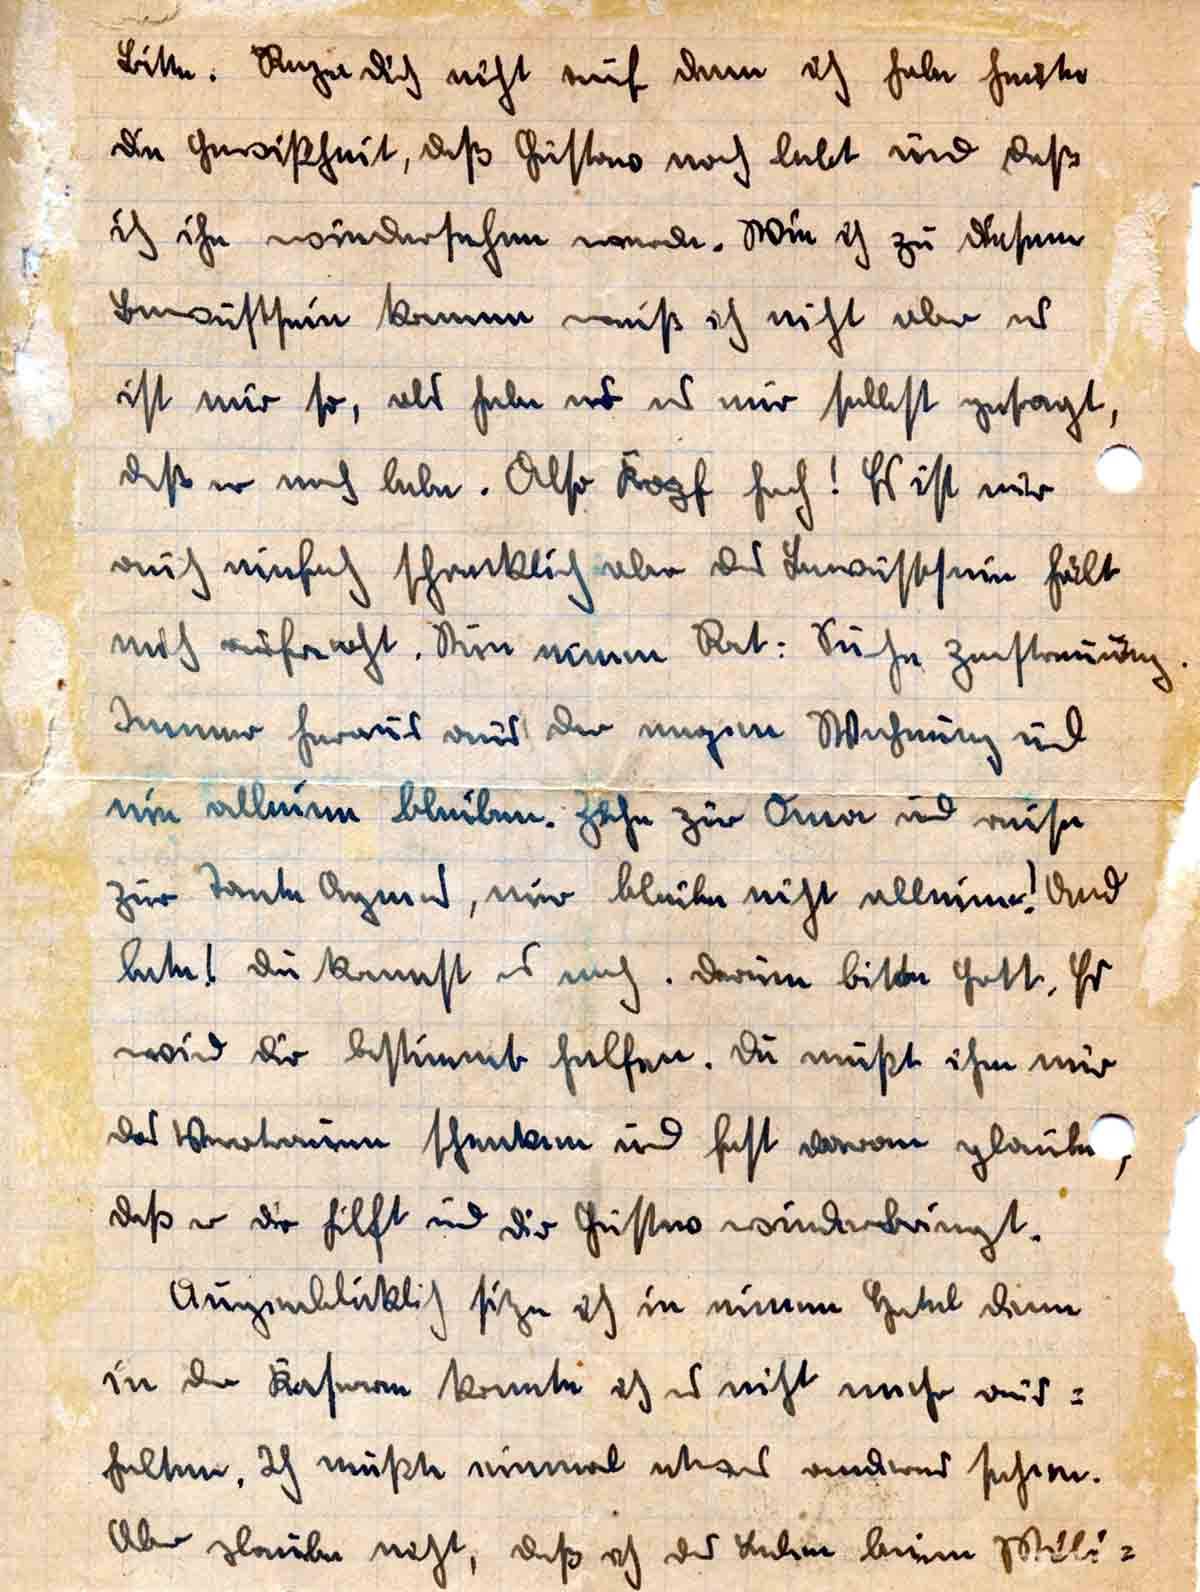 Bitte. Rege dich nicht auf denn ich habe heute
die Gewißheit, daß Gustav noch lebt und daß
ich ihn wiedersehen werde. Wie ich zu diesem
Bewustsein komme weiß ich nicht aber es
ist mir so, als habe er es mir selbst gesagt,
daß er noch lebe. Also Kopf hoch! Es ist mir
auch einfach schrecklich aber das Bewustsein hält
mich aufrecht. Nun einen Rat: Suche Zerstreuung.
Immer heraus aus der engen Wohnung und
nie alleine bleiben. Ziehe zur Oma und reise
zur Tante Agnes, nur bleibe nicht alleine! Und
bete! Du kannst es noch. Darum bitte Gott, Er
wird dir bestimmt helfen. Du mußt ihm nur
das Vertrauen schenken und fest daran glauben,
daß er dir hilft und dir Gustav wiederbringt.
Augenblicklich sitze ich in einem Hotel denn
in der Kaserne konnte ich es nicht mehr aus=
halten. Ich mußte einmal etwas anderes sehen.
Aber glaube nicht, daß ich das Leben beim Mili=